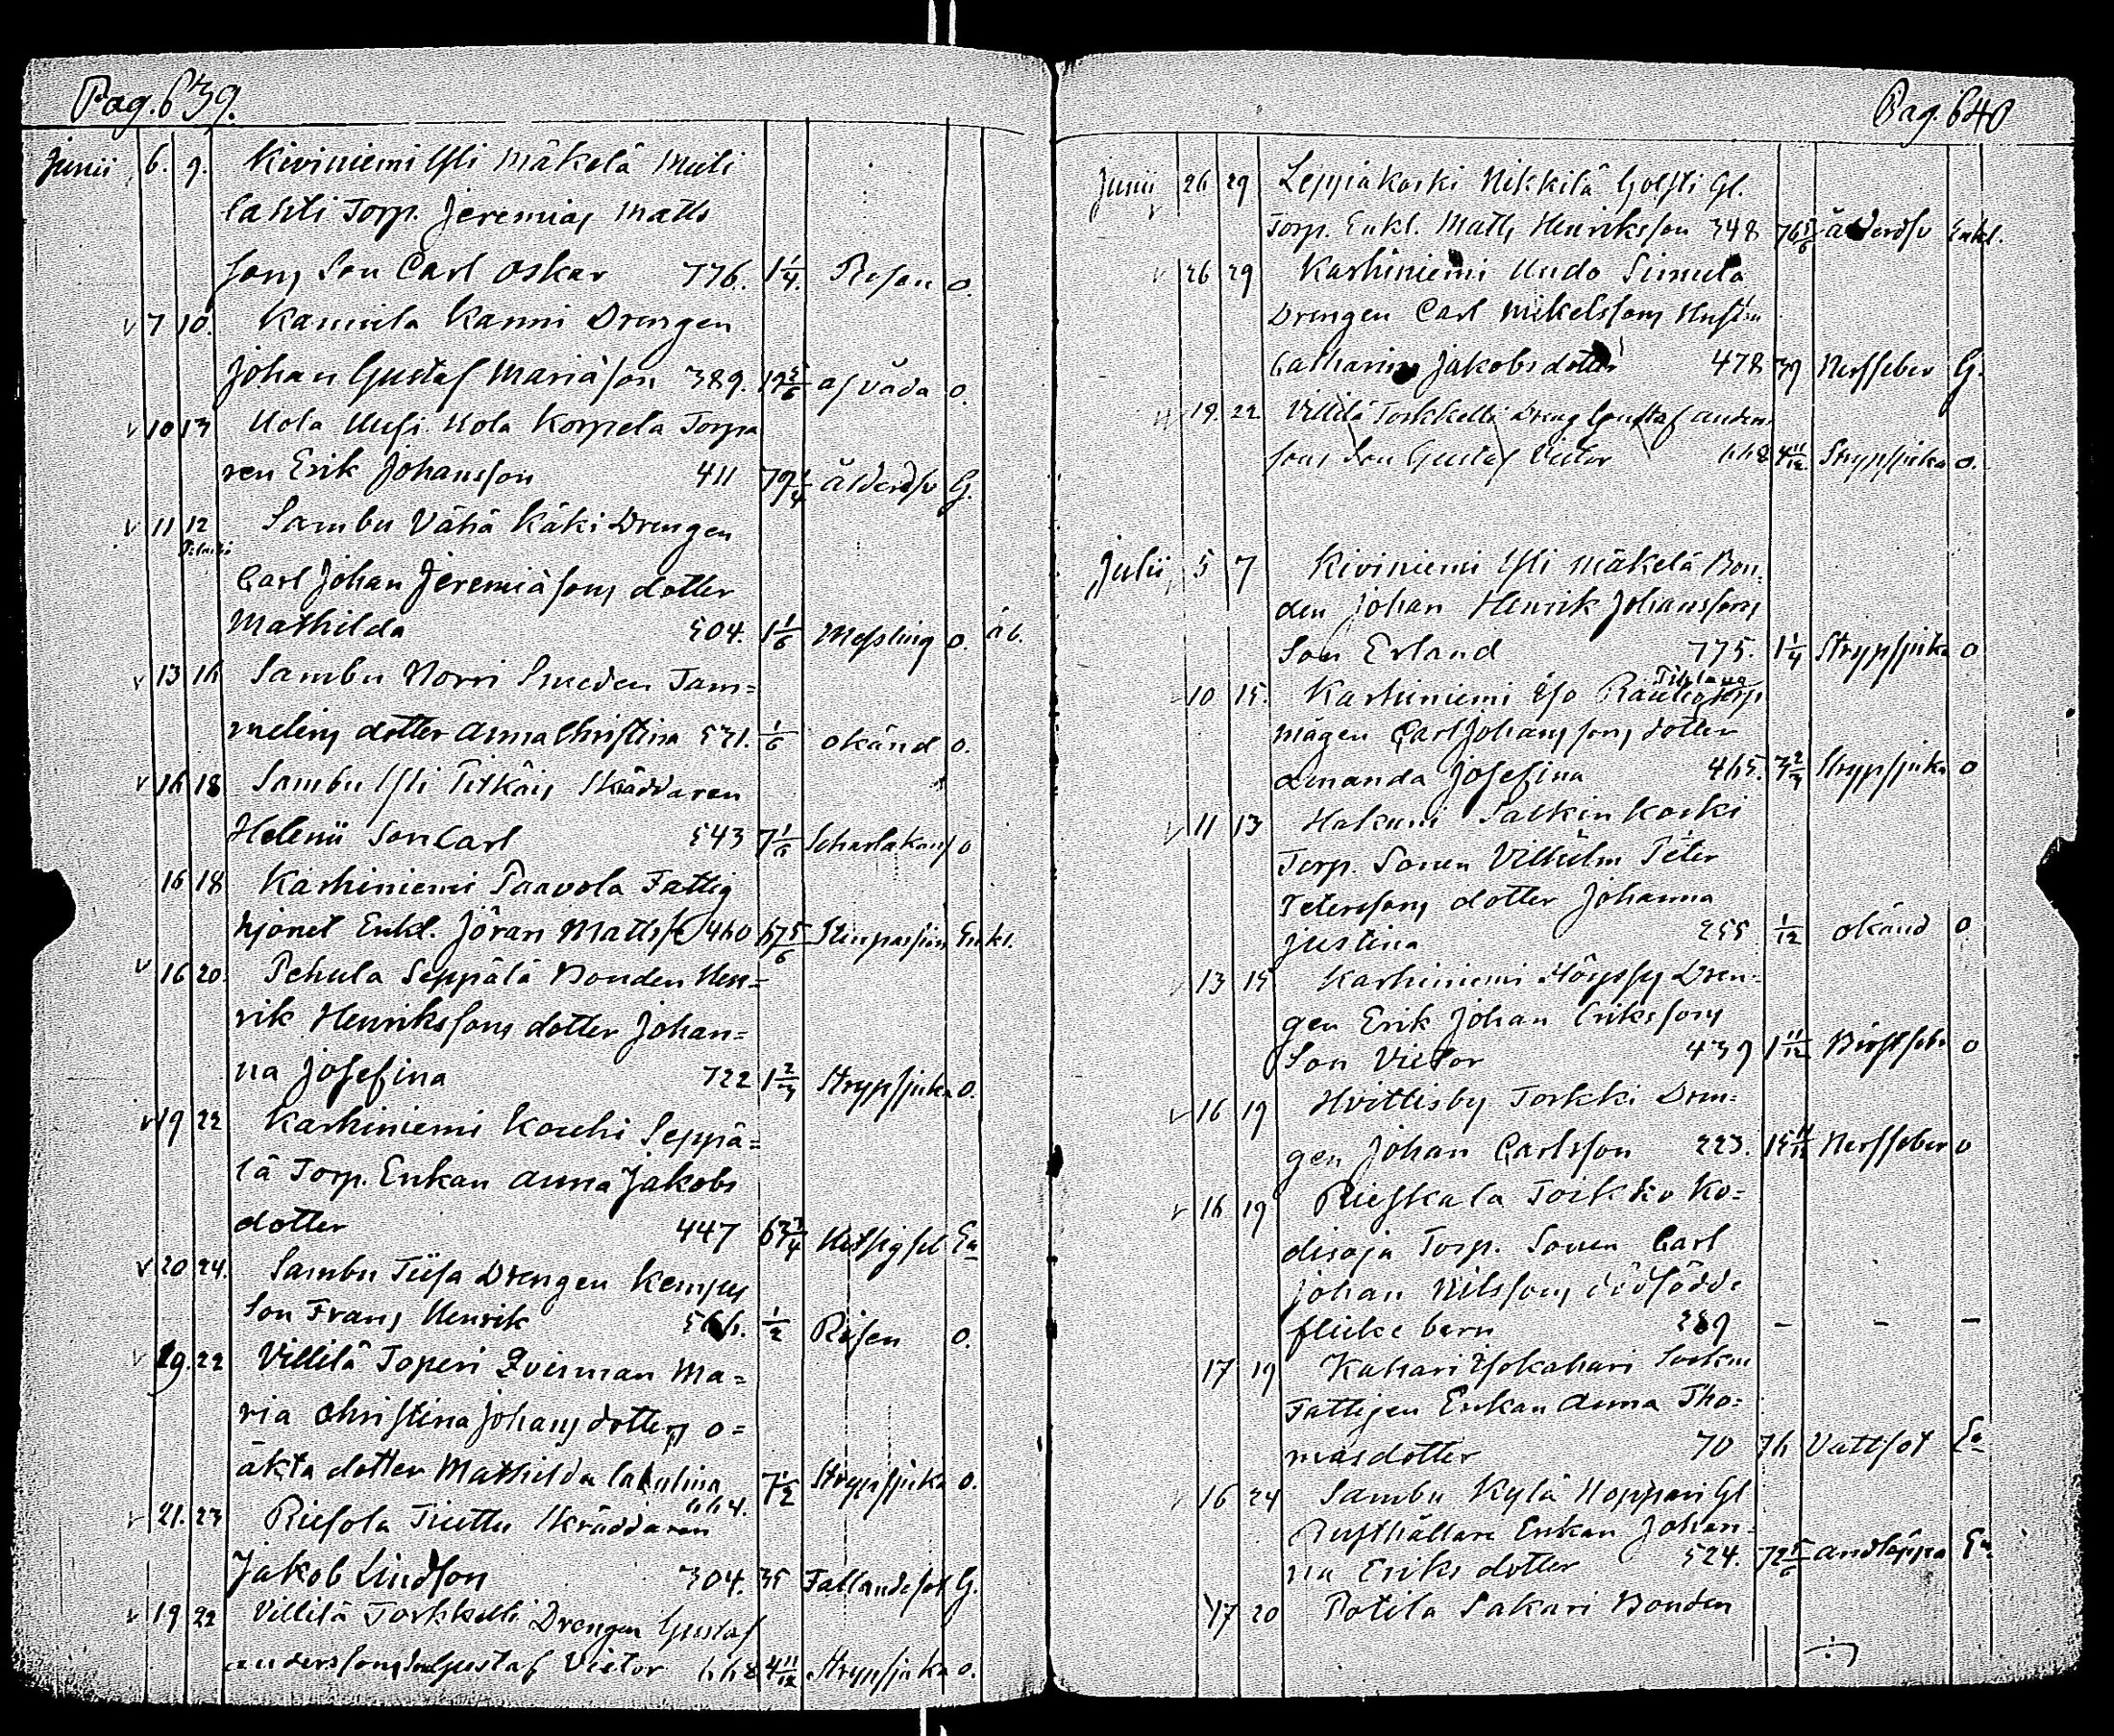 Pag. 639.
Junii 6. 9. Kiviniemi Yli Mäkelä Meeli
lahti Torp. Jeremias Matts
sons Son Carl Oskar 776. 1 1/4. Rosen o.
v 7 10. Kannila Kanni Drengen
Johan Gustaf Mariæson 389. 19 5/6 af våda o.
v 10 13 Uola Uusi Uola Korpela Torpa
ren Erik Johansson 411 79 1/4 ålderdsv G.
v 11 12 Sambu Vähä Käki Drengen
Carl Johan Jeremiæsons dotter
Mathilda 504. 1 1/6 Messling o.
v 13 16 Sambu Norri Smeden Tam=
melins dotter Anna Christina 531. 1/6 okänd o.
v 16 18 Sambu Yli Pitkäis Skräddaren
Helenii Son Carl 543 7 1/6 Scharlakansf o
16 18 Karhiniemi Paavola Fattig
hjonet Enkl. Jöran Mattss 460 67 5/6 Stenpassion Enkl.
v 16 20. Pehula Seppälä Bonden Hen=
rik Henrikssons dotter Johan=
na Josefina 722 1 2/3 Strypsjuka o.
v 19 22 Karhiniemi Kouhi Seppä=
lä Torp. Enkan Anna Jakobs
dotter 447 63 3/4 Hetsigfeb Ea
v 20 24. Sambu Tiisa Drengen Kempes
Son Frans Henrik 566. 1/2 Rosen o.
v 19. 22 Villilä Toperi Qvinnan Ma=
ria Christina Johansdotters o=
äkta dotter Mathilda 7 1/2 Strypsjuka o.
664.
v 21. 23 Riesola Tiuttu Skräddaren
Jakob Lindson 304. 35 Fallandesot G.
v 19 22 Villilä Torkkelli Drengen Gustaf
Anderssons Son Gustaf Victor 668 4 11/12 Strypsjuka o.
Pag. 640
Junii 26 29 Leppäkoski Nikkilä Gl.
v Torp. Enkl. Matts Henriksson 348 76 5/6 ålderdsv Enkl.
v 26 29 Karhiniemi Uudo Simula
Drengen Carl Mikelssons Hustru
Catharina Jakobsdotter 478 39 Nerffeber G.
19. 22 Villilä Torkkelli Dreng Gustaf Anders
sons Son Gustaf Victor 668 4 11/12. Strypsjuka o.
Julii 5 7 Kiviniemi Yli Mäkelä Bon=
den Johan Henrik Johanssons
Son Erland 775. 1 1/4 Strypsjuka o
10 15. Karhiniemi Iso Rautio Torp
mågen Carl Johanssons dotter
Amanda Josefina 465. 3 2/3 Strypsjuka o
v 11 13 Hakuni Koski
Torp. Sonen Vilhelm Peter
Peterssons dotter Johanna
Justina 255 1/12 okänd o
13 15 Karhiniemi Dren=
gen Erik Johan Erikssons
Son Victor 439 1 11/12 Bröstfeb. o
v 16 19 Hvittisby Torkki Dren=
gen Johan Carlsson 223. 15 11/12 Nerffeber o
v 16 19 Rieskala Toikko Ko=
disoja Torp. Sonen Carl
Johan Nilssons dödfödde
flicke barn 289 – – –
17 19 Kahari Isokahari Sockne
Fattigen Enkan Anna Tho=
masdotter 70 76 Vattsot Ea
v 16 24 Sambu Kylä Hoppari Gl
Rusthållare Enkan Johan=
na Eriksdotter 524. 72 5/6 andtäppa Ea.
17 20 Potila Sakari Bonden